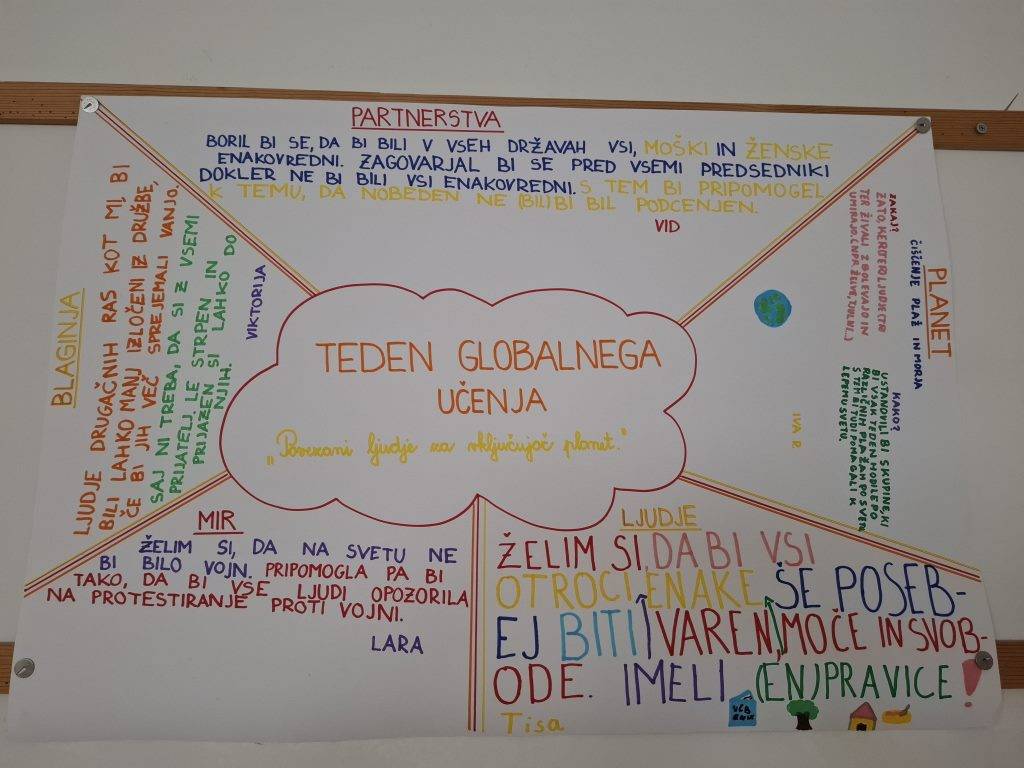 PARTNERSTVA
BORIL BI SE, DA BI BILI V VSEH DRŽAVAH VSI, MOŠKI IN ŽENSKE
ENAKOVREDNI. ZAGOVARJAL BI SE PRED VSEMI PREDSEDNIKI
DOKLER NE BI BILI VSI ENAKOVREDNI. S TEM BI PRIPOMOGEL
K TEMU, DA NOBEDEN NE (BIL) BI BIL PODCENJEN.
VID
BLAGINJA
LJUDJE DRUGAČNIH RAS KOT MI, BI
BILI LAHKO MANJ IZLOČENI IZ DRUŽBE,
ČE BI JIH VEČ SPREJEMALI VANJO.
SAJ NI TREBA, DA SI Z VSEMI
PRIJATELJ. LE STRPEN IN
PRIJAZEN SI LAHKO DO
NJIH.
VIKTORIJA
TEDEN GLOBALNEGA
UČENJA
"Povezani ljudje za vključujoč planet."
PLANET
ČIŠČENJE PLAŽ IN MORJA
ZAKAJ?
ZATO, KER
TER ŽIVALI ZBOLEVAJO IN
UMIRAJO.
KAKO?
USTANOVILI BI SKUPINE, KI
BI VSAK TEDEN HODILE PO
RAZLIČNIH PLAŽAH PO SVETU.
S TEM BI TUDI POMAGALI K
LEPEMU SVETU.
IVA R.
MIR
ŽELIM SI, DA NA SVETU NE
BI BILO VOJN. PRIPOMOGLA PA BI
TAKO, DA BI VSE LJUDI OPOZORILA
NA PROTESTIRANJE PROTI VOJNI.
LARA
LJUDJE
ŽELIM SI, DA BI VSI
OTROCI ENAKE, ŠE POSEB-
EJ BITI VAREN, MOČE IN SVOB-
ODE. IMELI (EN)PRAVICE!
Tisa